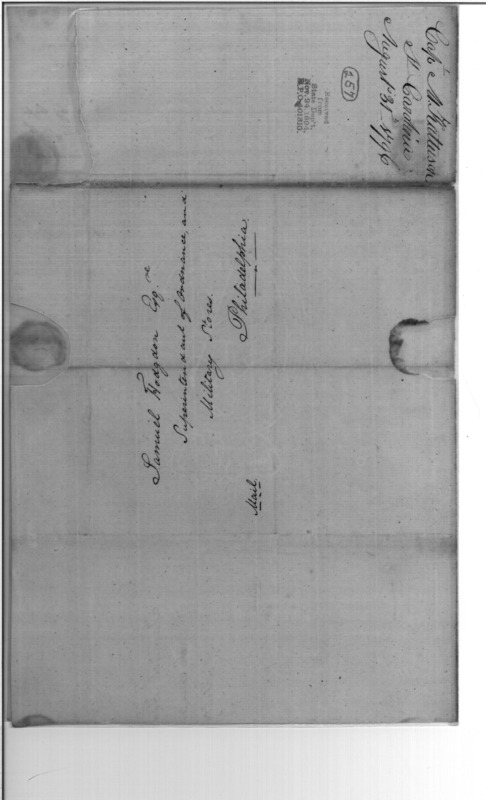 Capt M. Kalteisen
N. Carolina
August 31st 1796
257
Received
from
State Dep't,
Nov. 24, 1894,
R.P.O.
Samuel Hodgdon Esqre
Superintendant of Ordnance, and
Military Stores.
Philadelphia.
Mail